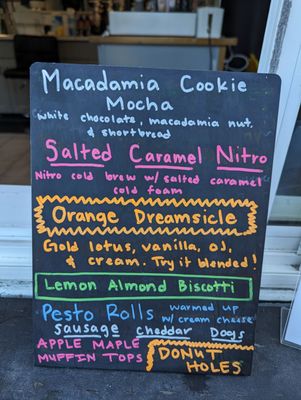 Macadamia Cookie
Mocha
white chocolate, macadamia nut,
& shortbread
Salted Caramel Nitro
Nitro cold brew w/ salted caramel
cold foam
Orange Dreamsicle
Gold lotus, vanilla, OJ,
& cream. Try it blended!
Lemon Almond Biscotti
Pesto Rolls warmed up
w/ cream cheese
sausage cheddar Dogs
APPLE MAPLE
MUFFIN TOPS
DONUT
HOLES